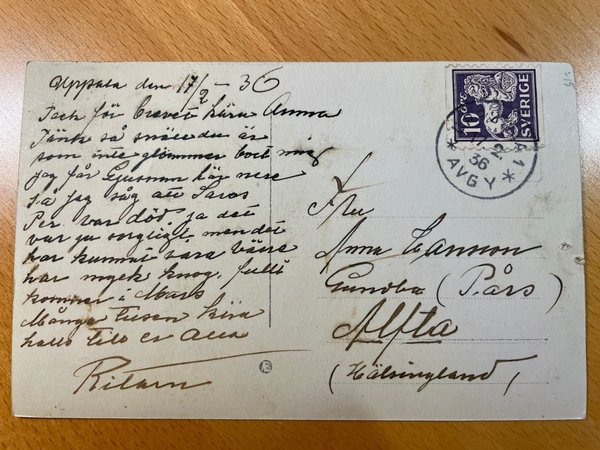 Uppsala den 17/2 - 36
Tack för brevet kära Anna
Tänk så snäll du är
som inte glömmer bort mig
jag får Ljusnan här nere
så jag såg att Lars
Per. var död, ja det
var ju sorgligt, men det
har kunnat vara värre
har mycke snog, fullt
kommer i Mars
Många tusen kära
hälls till er alla
10 öre
SVERIGE
36
AVG Y
Fru
Anna Hansson
Gundbo (Pårs)
Alfta
(Hälsingland)